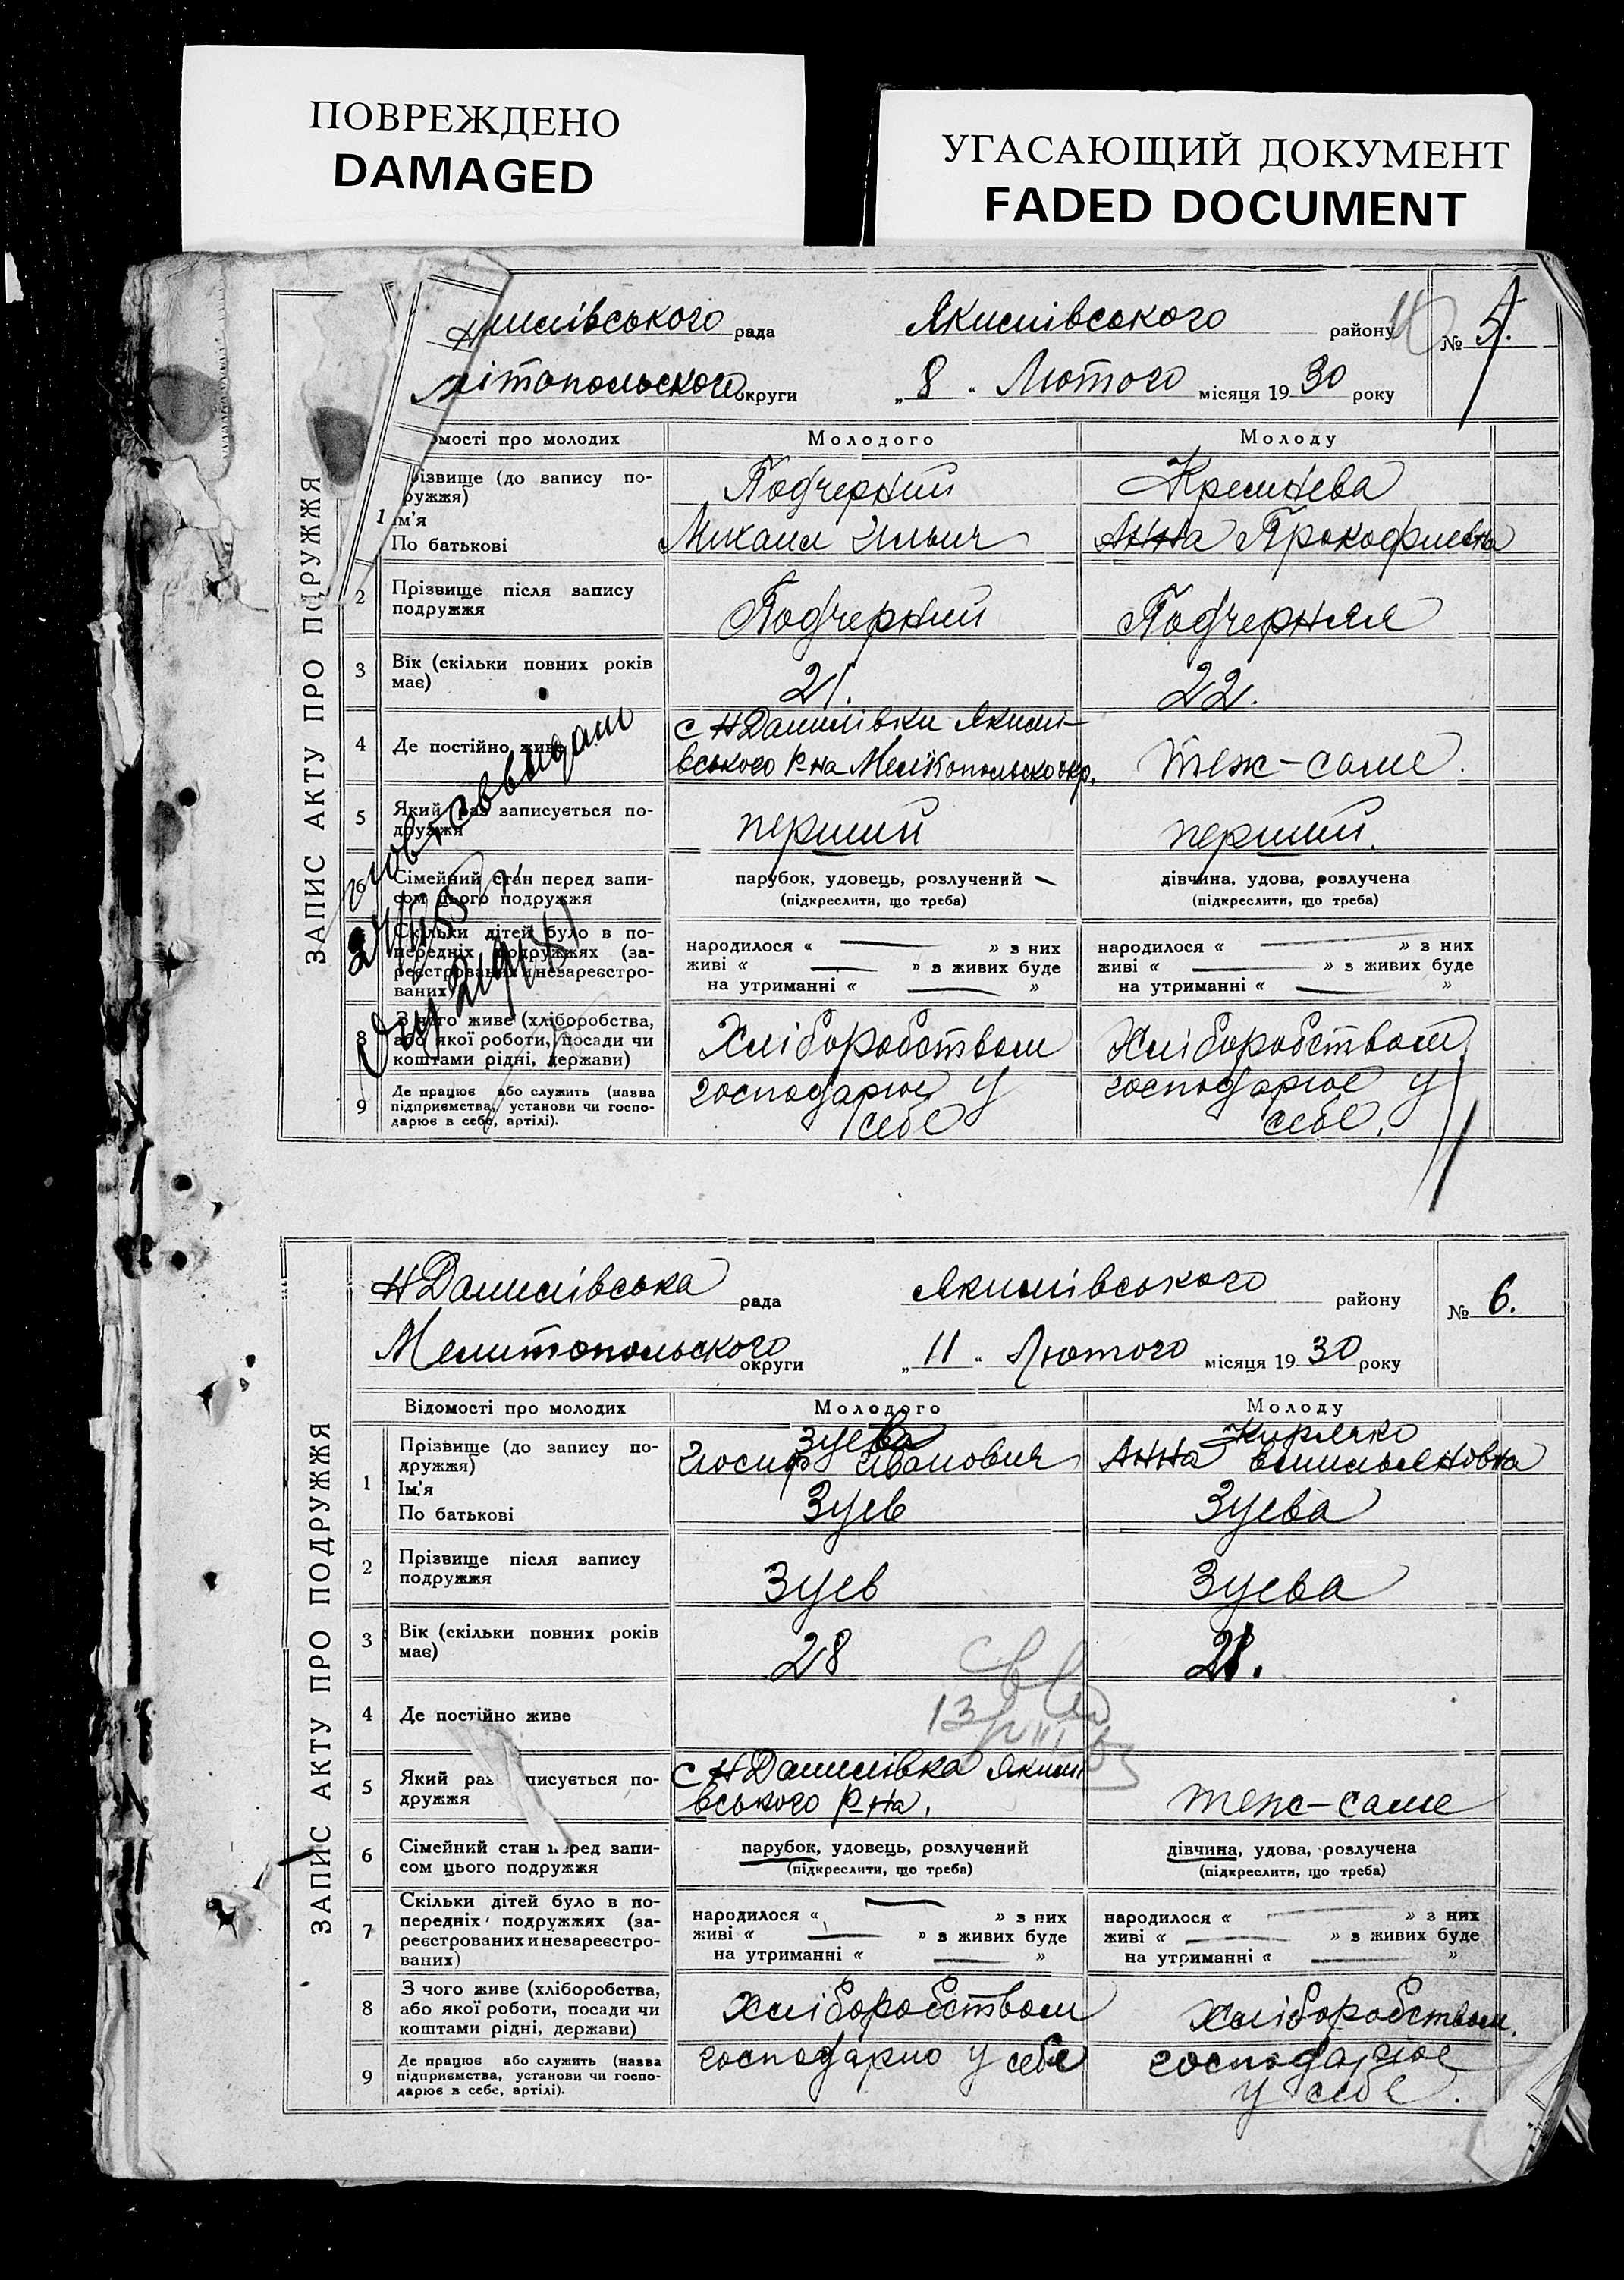 ПОВРЕЖДЕНО
DAMAGED
УГАСАЮЩИЙ ДОКУМЕНТ
FADED DOCUMENT
ЗАПИС АКТУ ПРО ПОДРУЖЖЯ
рада Якимівського району № 5.
округи „ 8 “ Лютого місяця 19 30 року
мості про молодих Молодого Молоду
різвище (до запису по- Подчерний Кремнева
ружжя)
1 ім'я Михаил Ильич Анна Прокофиевна
По батькові
2 Прізвище після запису Подчерний Подчерняя
подружжя
3 Вік (скільки повних років 21. 22.
має)
4 Де постійно живе с НДанилівки Якимі-
вського р-на Мелітопольсько окр. теж-саме.
5 Який раз записується по- перший перший.
дружжя
6 Сімейний стан перед запи- парубок, удовець, розлучений дівчина, удова, розлучена
сом цього подружжя (підкреслити, що треба) (підкреслити, що треба)
Скільки дітей було в по- народилося « » з них народилося « » з них
передніх подружжях (за- живі « » з живих буде живі « » з живих буде
реєстрованих и незареєстро- на утриманні « » на утриманні « »
ваних)
8 З чого живе (хліборобства, Хліборобством Хліборобством
або якої роботи, посади чи
коштами рідні, держави)
9 Де працює або служить (назва господарює у господарює у
підприємства, установи чи госпо- себе себе.
дарює в себе, артілі).
ЗАПИС АКТУ ПРО ПОДРУЖЖЯ
НДанилівська рада Якимівського району № 6.
Мелитопольского округи „ 11 “ Лютого місяця 19 30 року
Відомості про молодих Молодого Молоду
Зуева Кирляко
1 Прізвище (до запису по- Иосиф Иванович Анна Емильяновна
дружжя)
Ім'я Зуев Зуева
По батькові
2 Прізвище після запису Зуев Зуева
подружжя
3 Вік (скільки повних років 28 21.
має)
4 Де постійно живе
5 Який раз писується по- с НДанилівка Якимі
дружжя вського р-на. теж-саме
6 Сімейний стан перед запи- парубок, удовець, розлучений дівчина, удова, розлучена
сом цього подружжя (підкреслити, що треба) (підкреслити, що треба)
7 Скільки дітей було в по- народилося « » з них народилося « » з них
передніх подружжях (за- живі « » з живих буде живі « » з живих буде
реєстрованих и незареєстро- на утриманні « » на утриманні « »
ваних)
8 З чого живе (хліборобства, Хліборобством Хліборобством.
або якої роботи, посади чи
коштами рідні, держави)
9 Де працює або служить (назва господарю у себе господарює
підприємства, установи чи госпо- у себе.
дарює в себе, артілі).